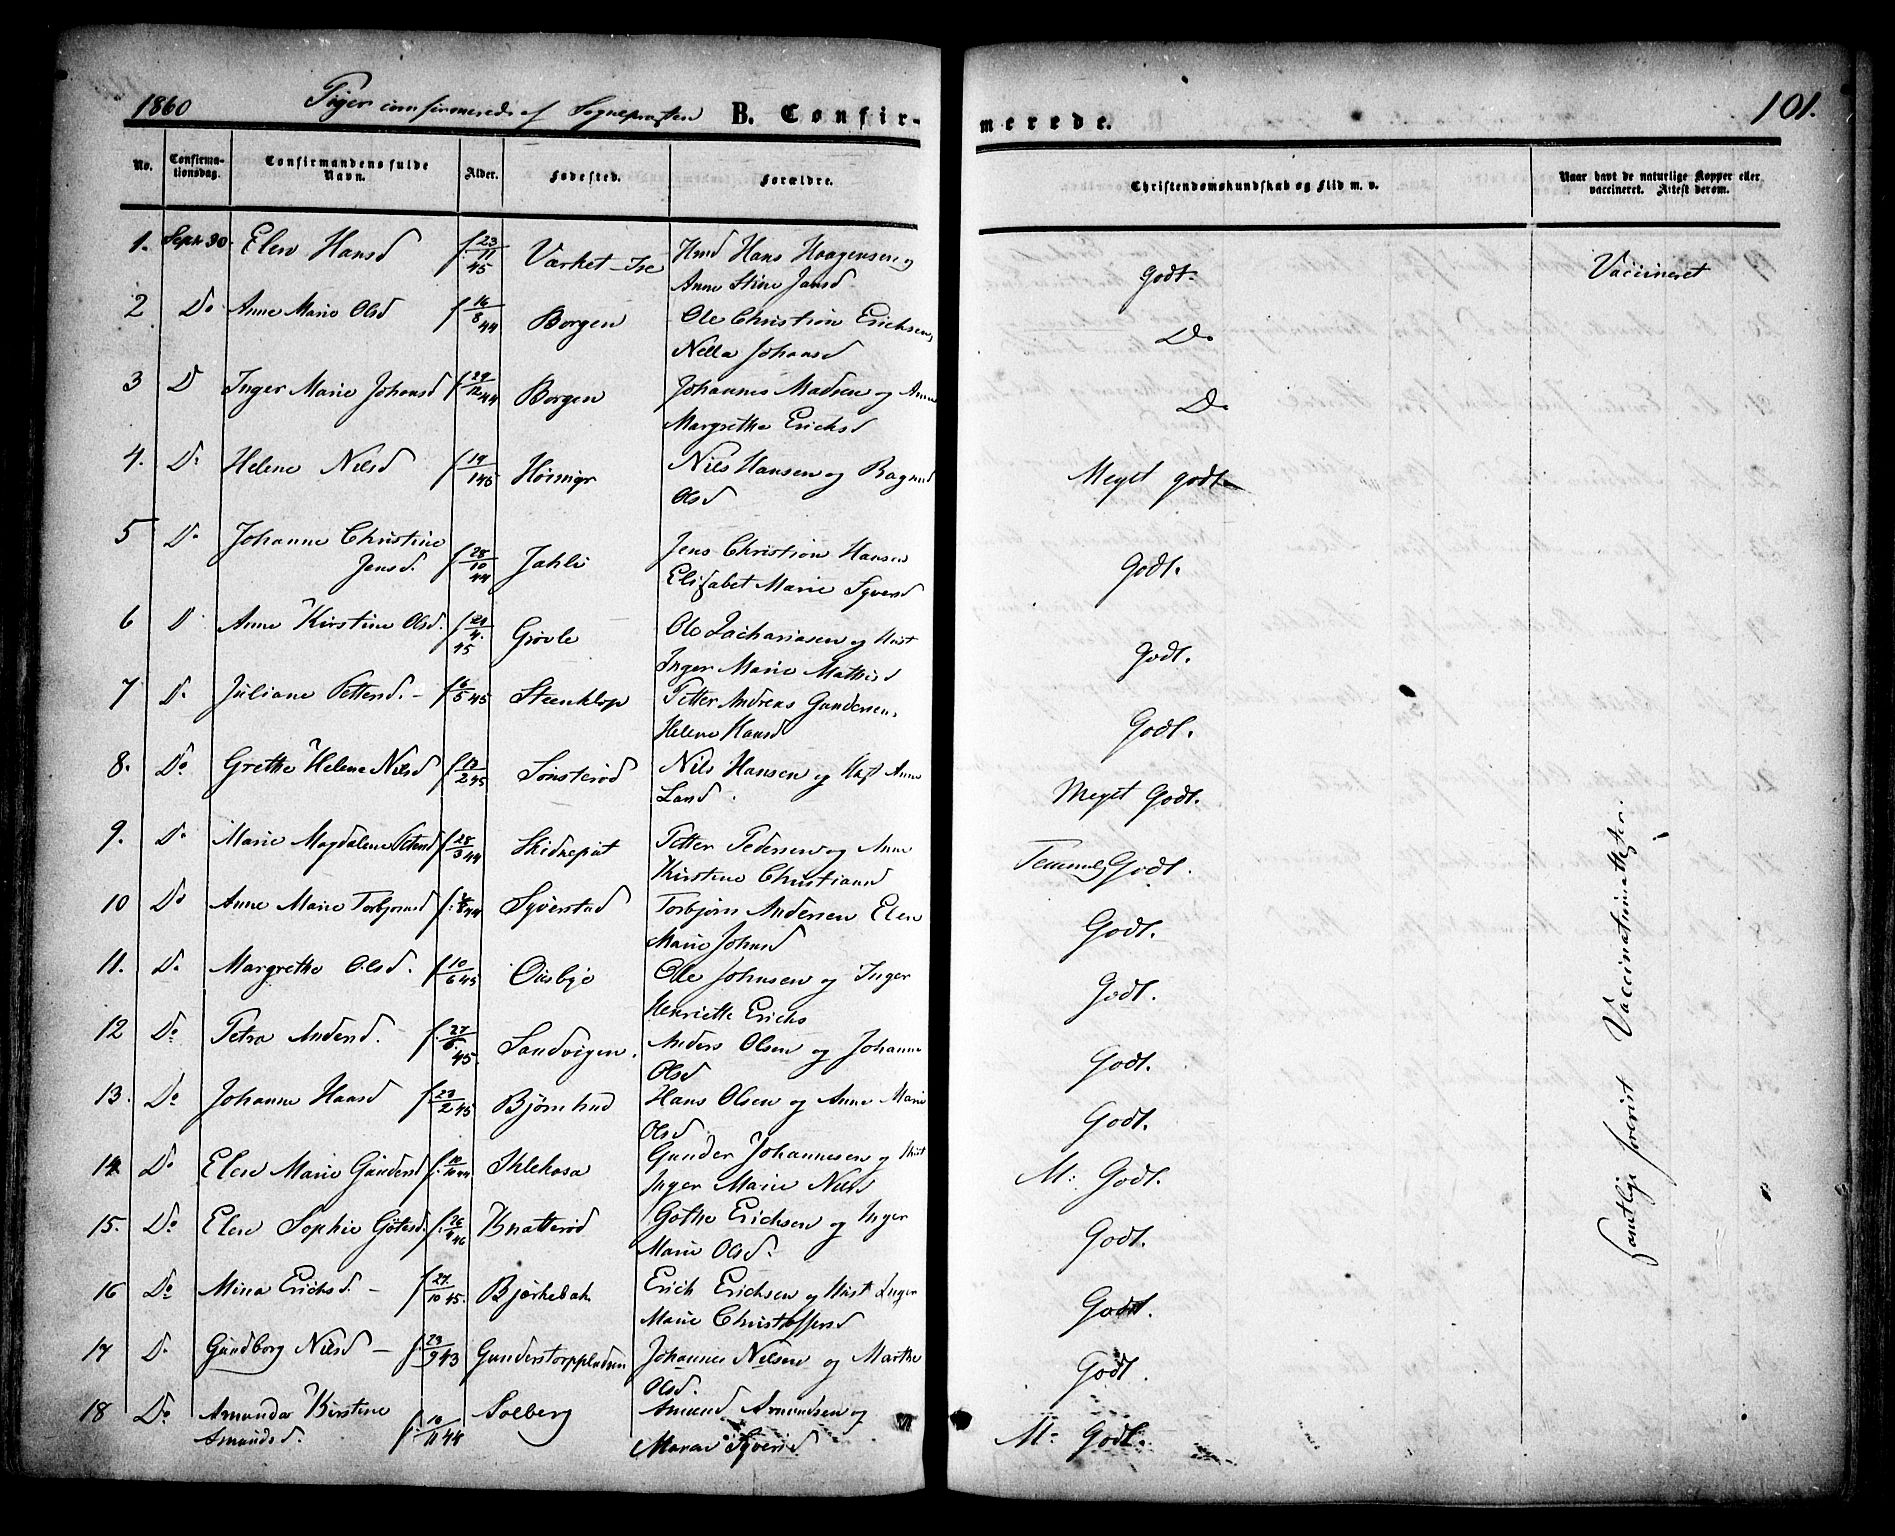 1860 Piger confirmerede af Sognepræsten B. Confir-merede. 101.
No. Confirma-tionsdag. Confirmandens fulde Navn. Alder. Fødested. Forældre. Christendomskundskab og Flid m. v. Naar havt de naturlige Kopper eller vaccineret. Attest derom.
1. Sept 30. Elen Hansd f. 23/11 45 Værket - Ise Hmd Hans Haagensen og
Anne Stine Jansd Godt. Vaccineret
2 Do Anne Marie Olsd f 16/8 44 Borgen Ole Christian Erichsen,
Nella Johansd Do
3 D Inger Marie Johansd f 29/12 44 Borgen Johannes Madsen og Anne
Margrethe Ericksd Do
4. Do Helene Nilsd f 19/1 45 Nils Hansen og Ragnild
Olsd Meget godt.
5 Do Johanne Christine
Jensd. f 28/10 44 Jahli Jens Christian Hansen
Elisabet Marie Syversd Godt.
6 D Anne Kirstine Olsd. f 24/4 45 Grøvle Ole Zachariasen og Hust
Inger Marie Mathisd Godt.
7 Do Juliane Pettersd. - f 6/5 45 Steenklop Petter Andreas Gundersen,
Helene Hansd Godt.
8. Do Grethe Helene Nilsd f 12/2 45 Sønsterød Nils Hansen og Hust Anne
Larsd. Meget Godt.
9. Do Marie Magdalene Petersd f 28/3 44 Petter Pedersen og Anne
Kirstine Christiansd Temmelig Godt.
10 Do Anne Marie Torbjørnsd f. /8 44 Syverstad Torbjørn Andersen Elen
Marie Johnsd Godt.
11. Do Margrethe Olsd. f 10/6 45 Ousbye Ole Johnsen og Inger
Henriette Erichs Godt.
12 Do Petra Andersd. f. 27/8 45. Sandvigen. Anders Olsen og Johanne
Olsd Godt.
13. Do Johanne Hansd f. 23/2 45 Bjørnhud Hans Olsen og Anne Marie
Olsd. Godt.
14 Do Elen Marie Gundersd f. 10/11 44 Gunder Johannesen og Hust
Inger Marie Nils M: Godt.
15. Do Elen Sophie Gøtesd. f. 26/4 46 Knatterød Gøthe Erichsen og Inger
Marie Olsd. Godt.
16 Do Mina Erichsd. - f 27/10 45. Bjørkebæk Erich Erichsen og Hust Inger
Marie Christoffersd Godt.
17 Do Gundborg Nilsd - f. 23/9 43 Johannes Nilsen og Marthe
Olsd. Godt.
18 Do Amunda Kirstine
Amundsd. f. 10/11 44 Solberg Amund Amundsen og
Maren Syversd M: Godt.
Samtlige forevist Vaccinationattester.